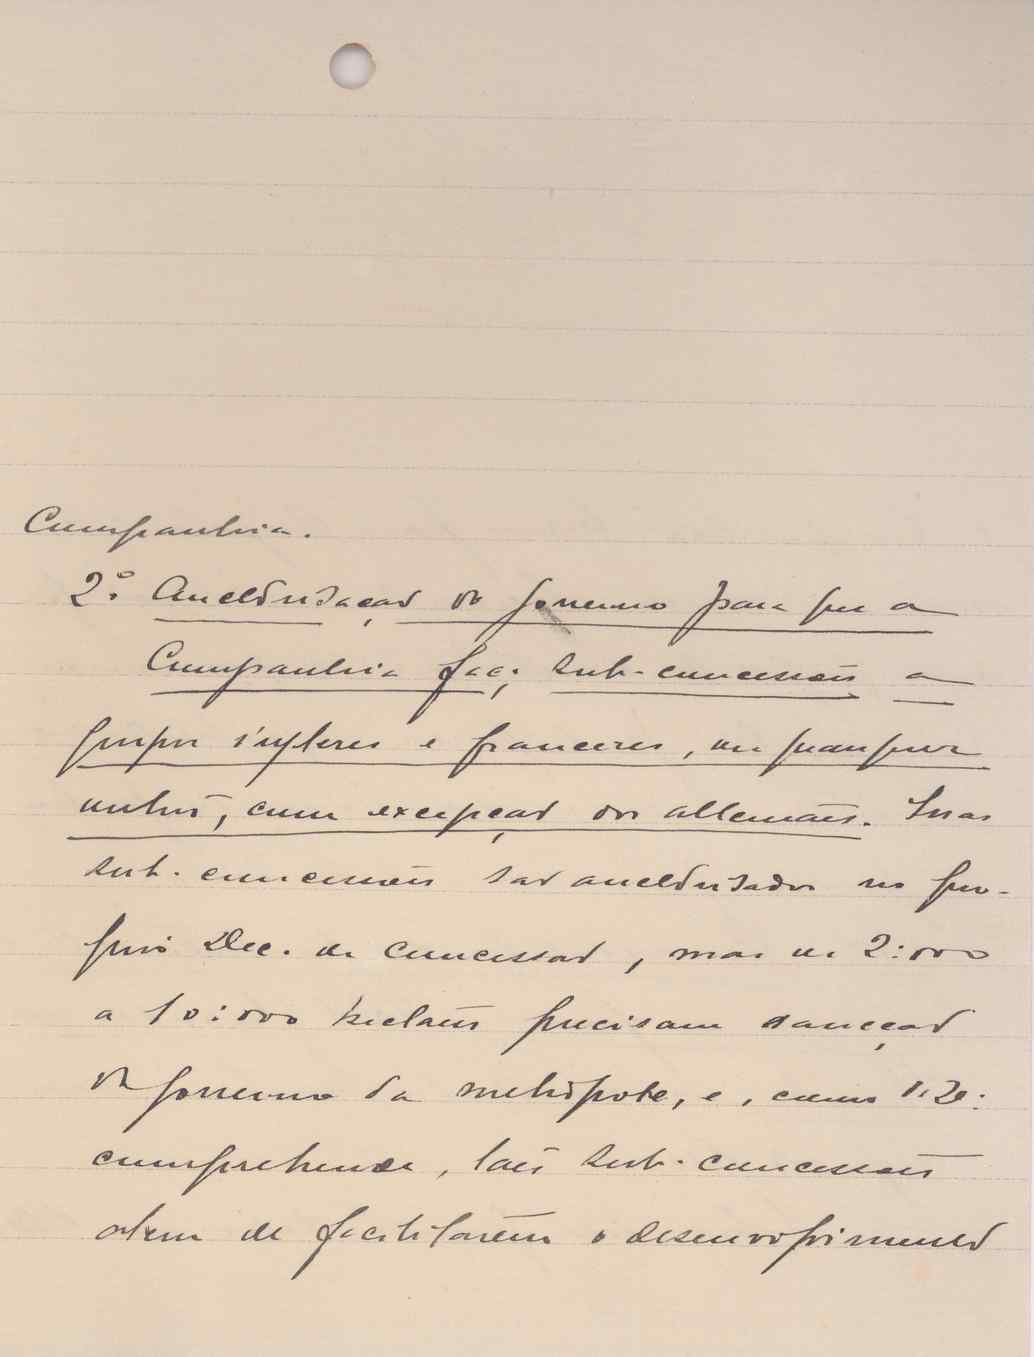 Companhia.
2.º Auctorisação do governo para que a
Companhia faça sub-concessões a
grupos inglezes e francezes, ou quaesquer
outros, com excepção dos allemães. Essas
sub-concessões são auctorisadas no pro-
prio Dec. de concessão, mas de 2:000
a 10:000 hectares precisam sancção
do governo da metropole, e, como V. Ex.
comprehende, taes sub-concessões
alem de facilitarem o desenvolvimento